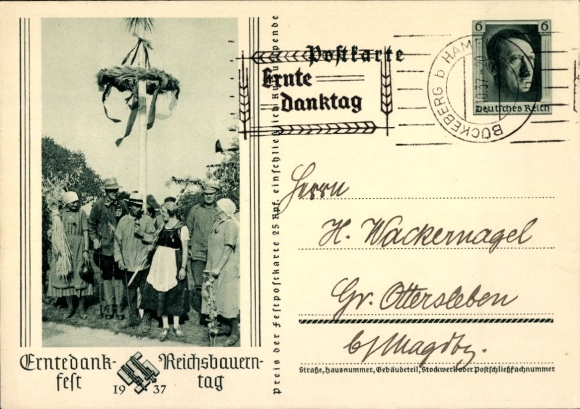 6 6
Deutsches Reich
BÜCKEBERG b HAM
Postkarte
Ernte
danktag
Preis der Festpostkarte 25 Rpf. einschließlich Kulturspende
Herrn
H. Wackernagel
Gr. Ottersleben
b/Magdbg.
Straße, Hausnummer, Gebäudeteil, Stockwerk oder Postschließfachnummer
Erntedank-
fest
19 37
Reichsbauern-
tag